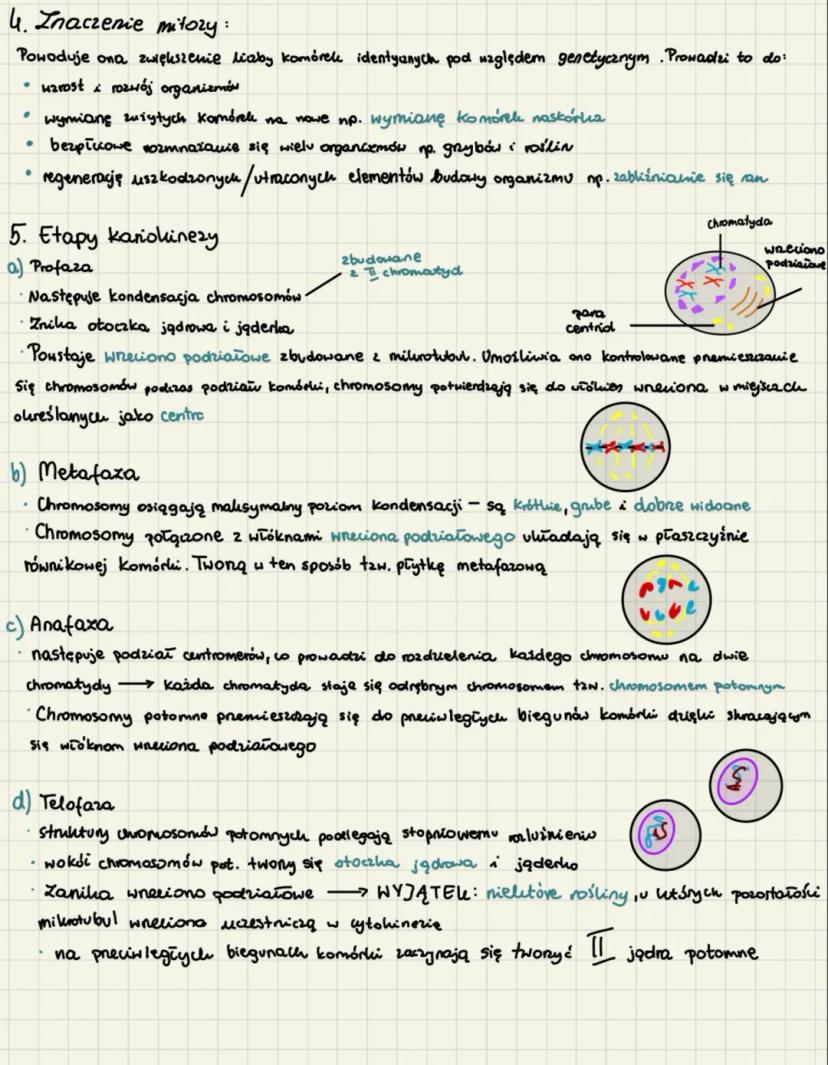 4. Znaczenie mitozy:
Powoduje ona zwiększenie liczby komórek identycznych pod względem genetycznym. Prowadzi to do:
• wzrost i rozwój organizmów
• wymianę zużytych komórek na nowe np. wymianę komórek naskórka
• bezpłciowe rozmnażanie się wielu organizmów np. grzybów i roślin
• regenerację uszkodzonych/utraconych elementów budowy organizmu np. zabliźnianie się ran
5. Etapy kariokinezy
a) Profaza
zbudowane
z II chromatyd
· Następuje kondensacja chromosomów
· Znika otoczka jądrowa i jąderka
chromatyda
wrzeciono
podziałowe
para
centriol
· Powstaje wrzeciono podziałowe zbudowane z mikrotubul. Umożliwia ono kontrolowane przemieszczanie
się chromosomów podczas podziału komórki, chromosomy potwierdzają się do włókien wrzeciona w miejscach
określanych jako centro
b) Metafaza
· Chromosomy osiągają maksymalny poziom kondensacji – są krótkie, grube i dobrze widoczne
· Chromosomy połączone z włóknami wrzeciona podziałowego układają się w płaszczyźnie
równikowej komórki. Tworzą w ten sposób tzw. płytkę metafazową
c) Anafaza
· następuje podział centromerów, co prowadzi do rozdzielenia każdego chromosomu na dwie
chromatydy → każda chromatyda staje się odrębnym chromosomem tzw. chromosomem potomnym
· Chromosomy potomne przemieszczają się do przeciwległych biegunów komórki dzięki skracającym
się włóknom wrzeciona podziałowego
d) Telofaza
· struktury chromosomów potomnych podlegają stopniowemu rozluźnieniu
· wokół chromosomów pot. tworzy się otoczka jądrowa i jąderko
· Zanika wrzeciono podziałowe → WYJĄTEK: niektóre rośliny, u których pozostałości
mikrotubul wrzeciona uczestniczą w cytokinezie
· na przeciwległych biegunach komórki zaczynają się tworzyć II jądra potomne